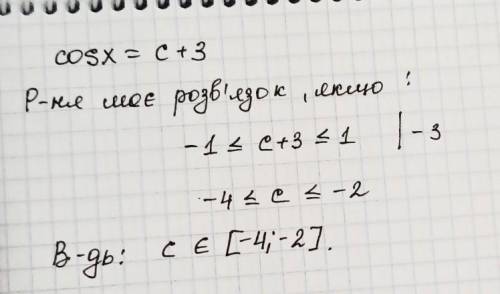 cosx = c+3
Р-ня має розв'язок, якщо :
-1 ≤ c+3 ≤ 1 | -3
-4 ≤ c ≤ -2
В-дь: c ∈ [-4;-2].